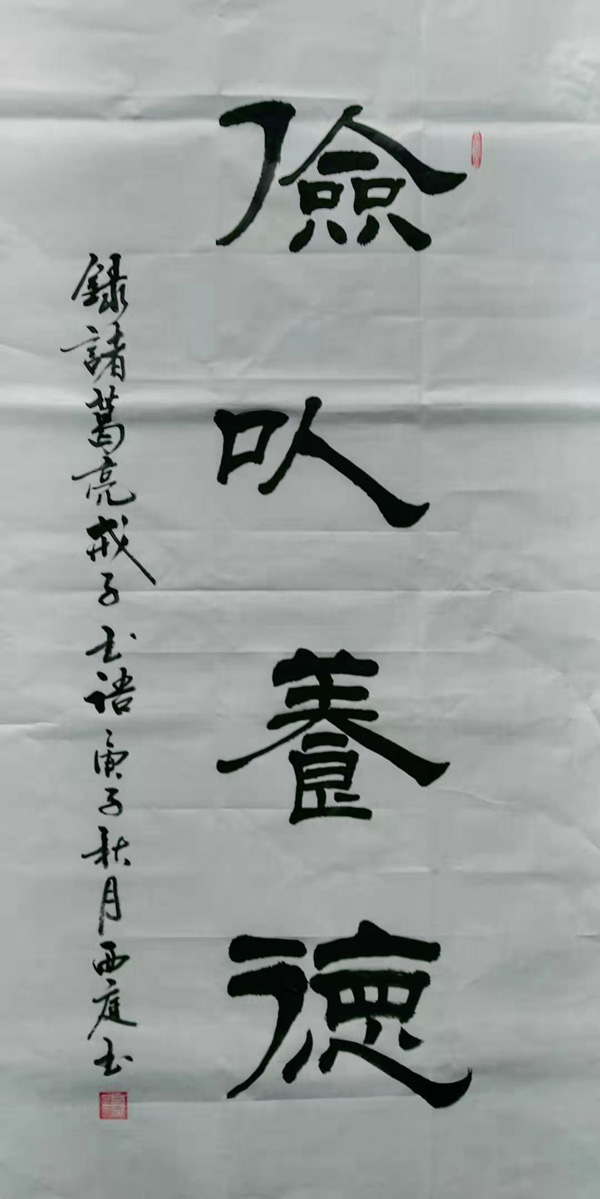 儉以養德
錄諸葛亮戒子书語庚子秋月西庭书